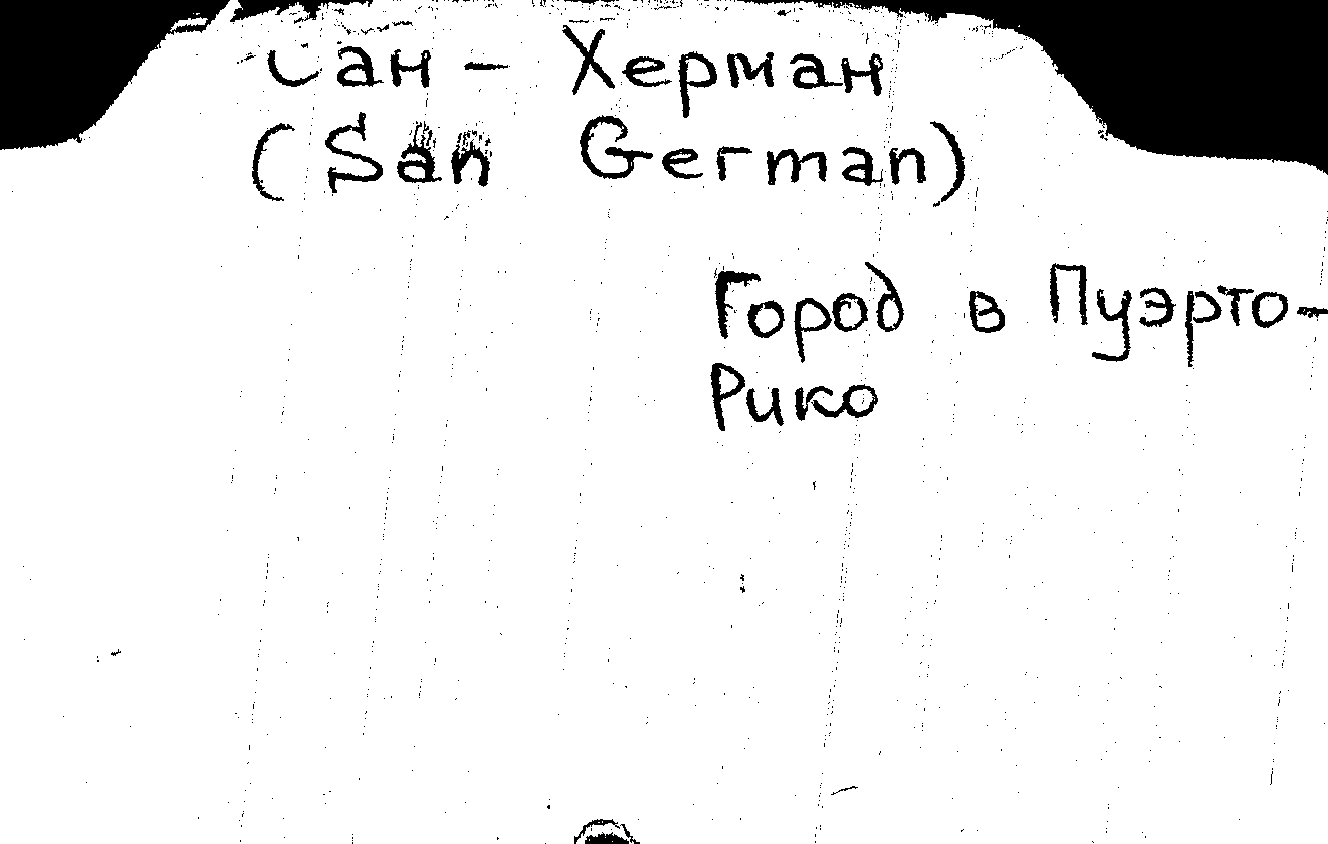 Сан - Херман
(San German)
Город в Пуэрто-
Рико